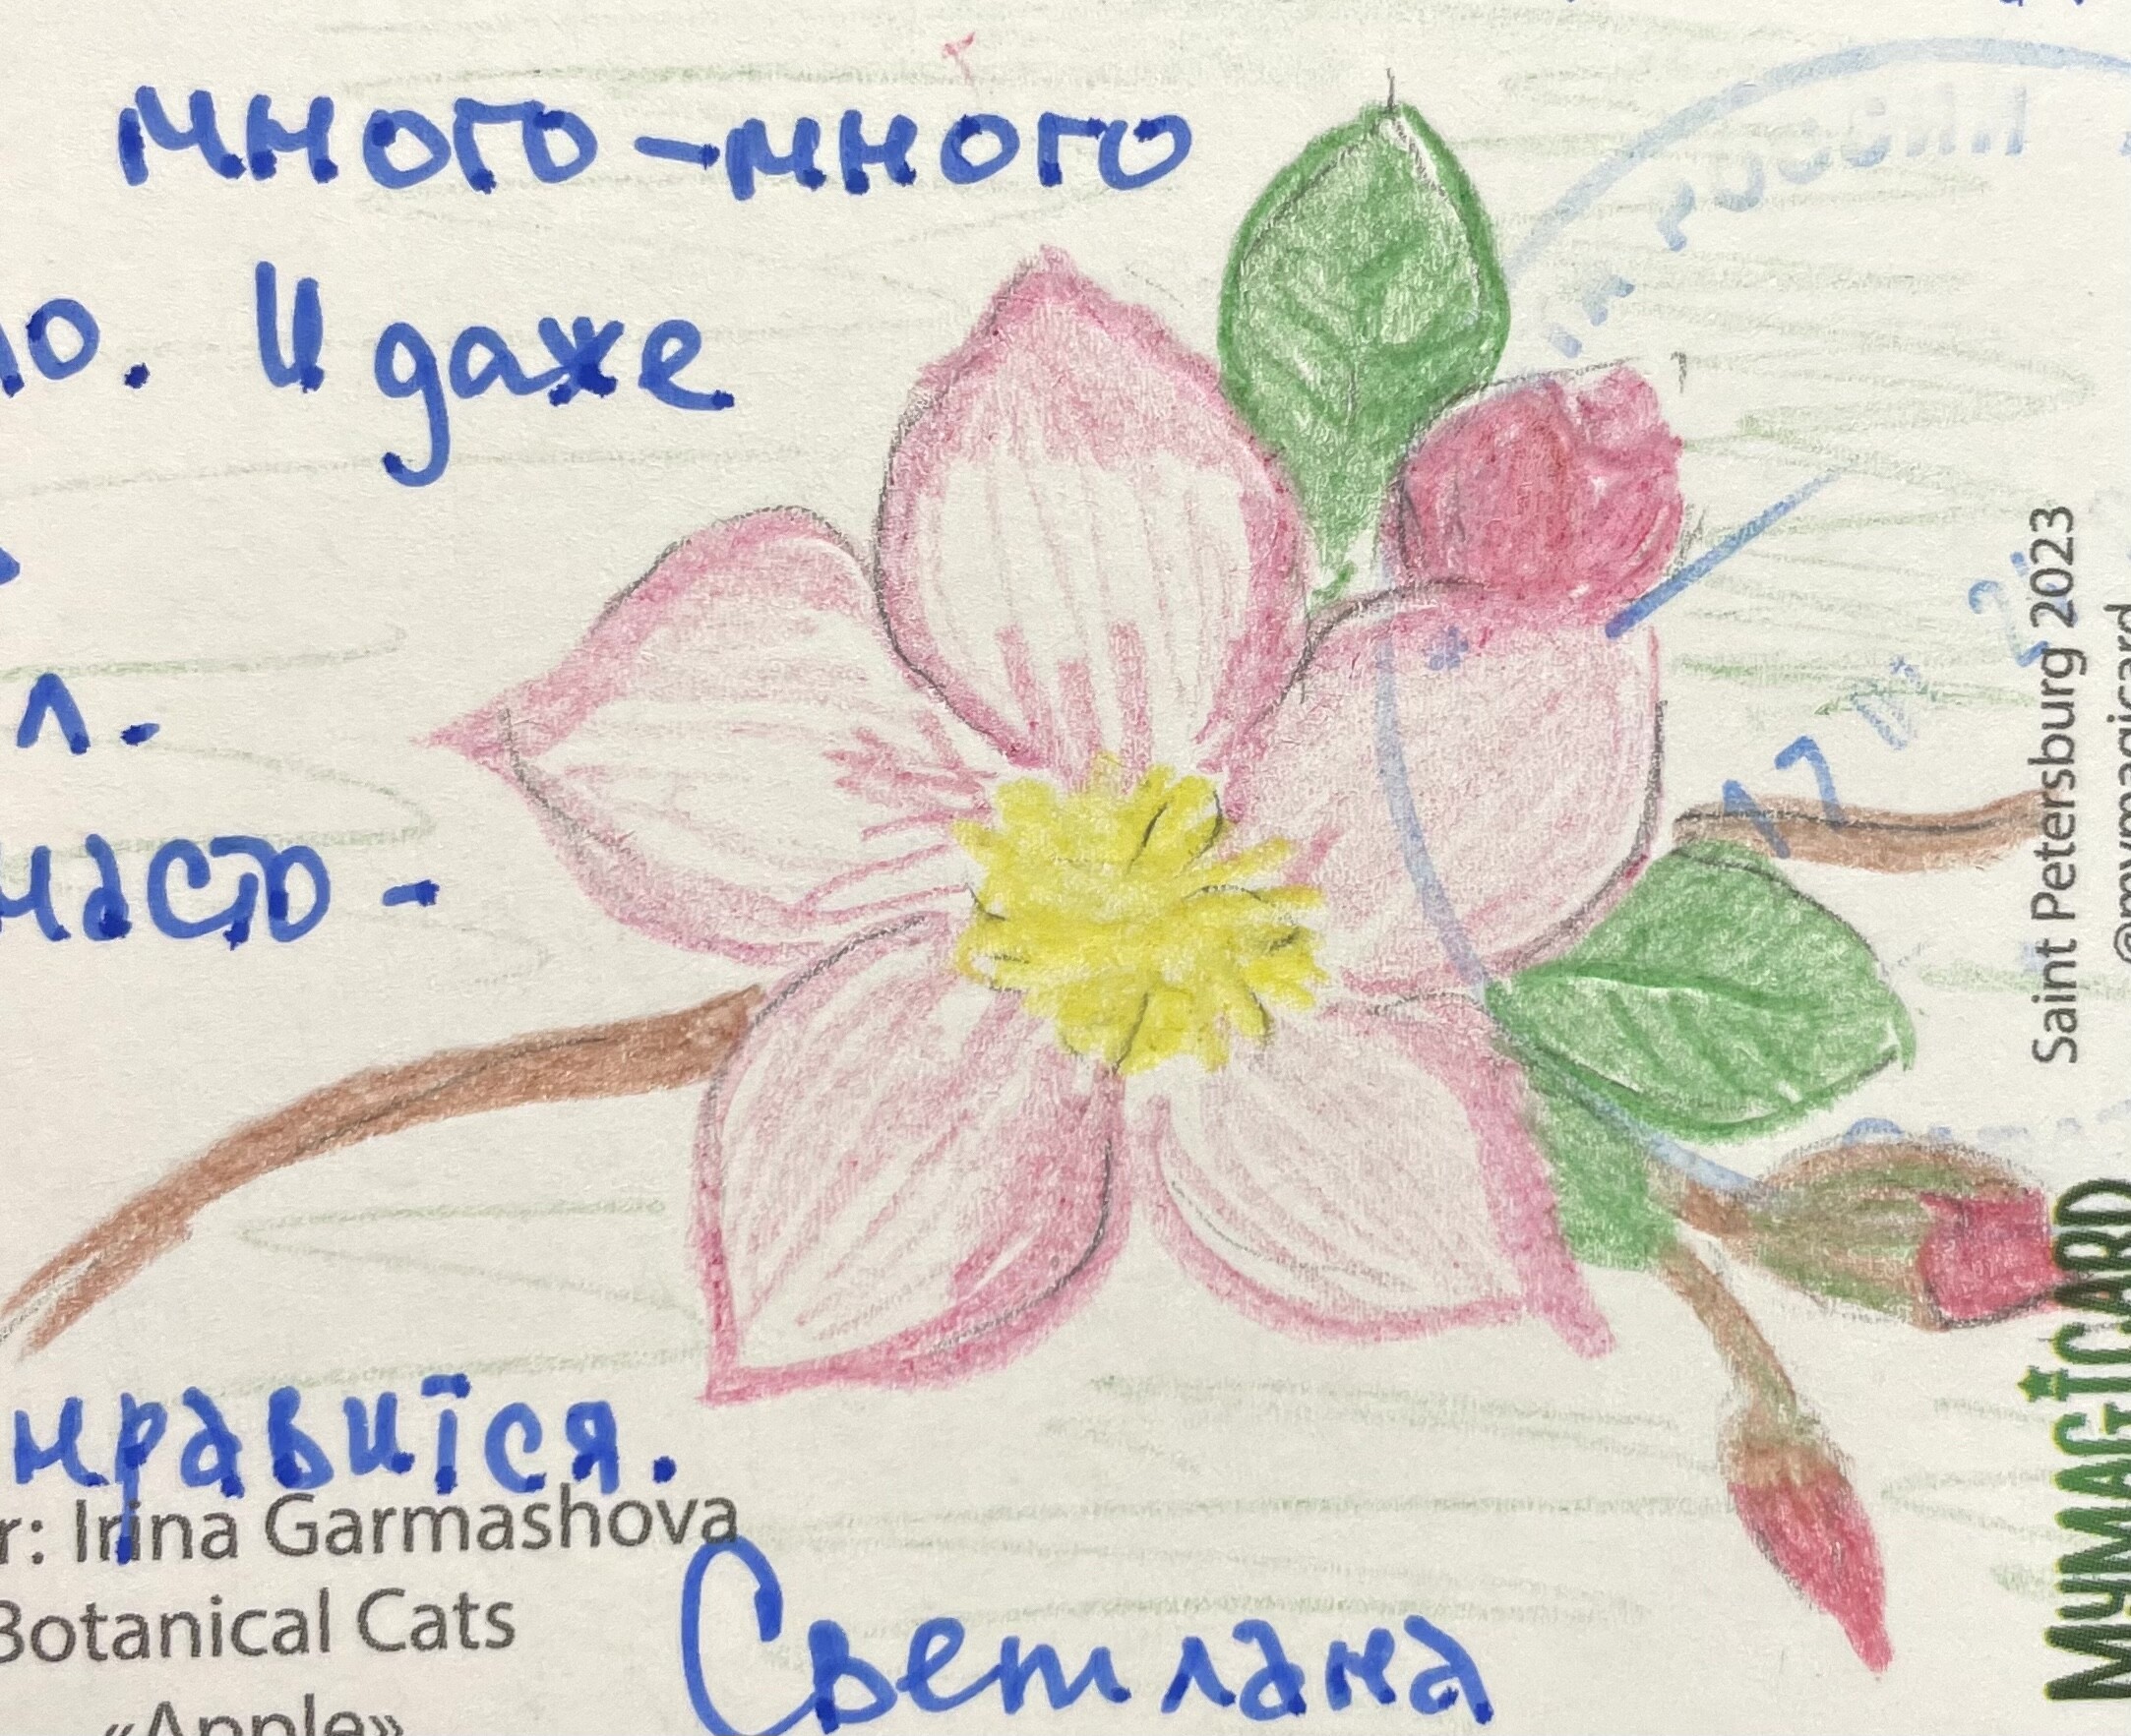 много-много
ю. И даже
л.
часто-
нравится.
r: Irina Garmashova
Botanical Cats
«Apple»
Светлана
Saint Petersburg 2023
@mymagicard
MYMAGICARD
17